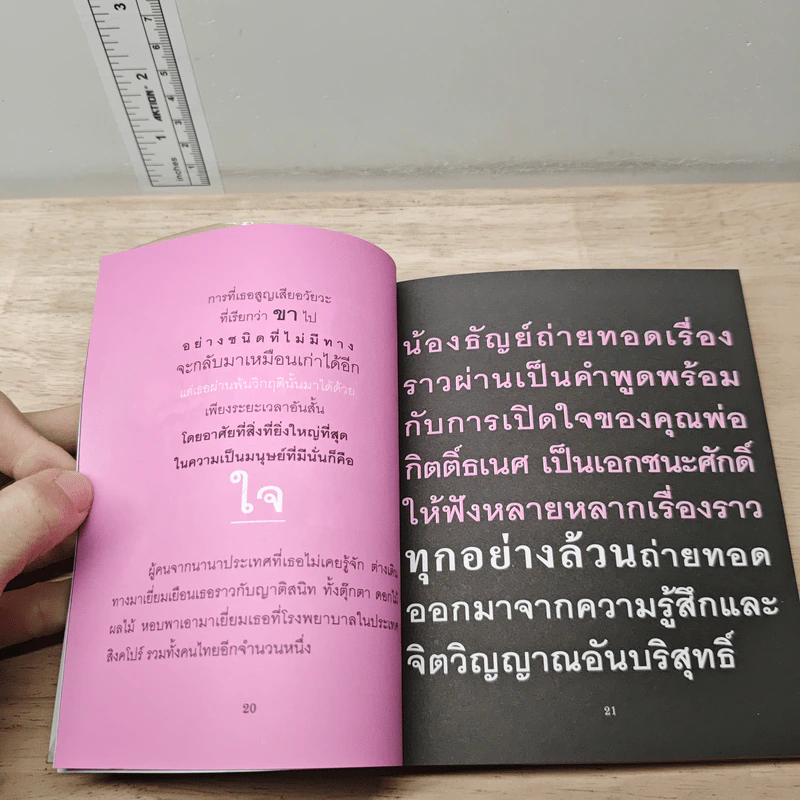 3
7
6
2
5
AKTION®
4
1
3
2
1
inches
การที่เธอสูญเสียอวัยวะ
ที่เรียกว่า ขา ไป
อย่างชนิดที่ไม่มีทาง
จะกลับมาเหมือนเก่าได้อีก
แต่เธอผ่านพ้นวิกฤตินั้นมาได้ด้วย
เพียงระยะเวลาอันสั้น
โดยอาศัยที่สิ่งที่ยิ่งใหญ่ที่สุด
ในความเป็นมนุษย์ที่มีนั่นก็คือ
ใจ
ผู้คนจากนานาประเทศที่เธอไม่เคยรู้จัก ต่างเดิน
ทางมาเยี่ยมเยือนเธอราวกับญาติสนิท ทั้งตุ๊กตา ดอกไม้
ผลไม้ หอบพาเอามาเยี่ยมเธอที่โรงพยาบาลในประเทศ
สิงคโปร์ รวมทั้งคนไทยอีกจำนวนหนึ่ง
20
น้องธัญย์ถ่ายทอดเรื่อง
ราวผ่านเป็นคำพูดพร้อม
กับการเปิดใจของคุณพ่อ
กิตติ์ธเนศ เป็นเอกชนะศักดิ์
ให้ฟังหลายหลากเรื่องราว
ทุกอย่างล้วนถ่ายทอด
ออกมาจากความรู้สึกและ
จิตวิญญาณอันบริสุทธิ์
21